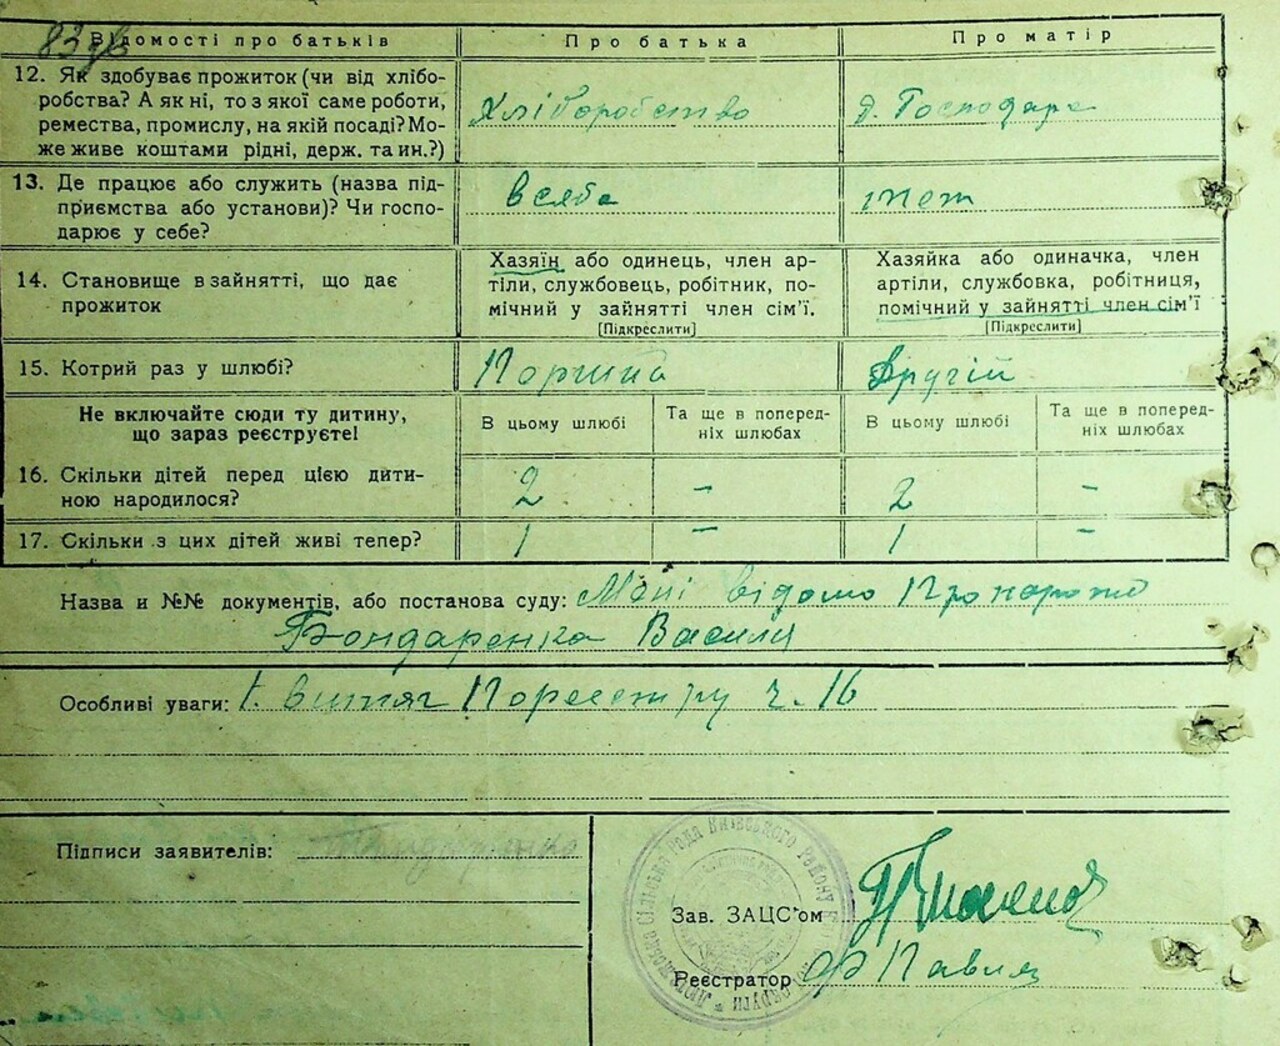 83 зв
Відомості про батьків
Про батька
Про матір
12. Як здобуває прожиток (чи від хлібо-
робства? А як ні, то з якої саме роботи,
ремества, промислу, на якій посаді? Мо-
же живе коштами рідні, держ. та ин.?)
Хліборобство
д. Господарс
13. Де працює або служить (назва під-
приємства або установи)? Чи госпо-
дарює у себе?
всябе
тжет
14. Становище в зайнятті, що дає
прожиток
Хазяїн або одинець, член ар-
тіли, службовець, робітник, по-
мічний у зайнятті член сім'ї.
[Підкреслити]
Хазяйка або одиначка, член
артіли, службовка, робітниця,
помічний у зайнятті член сім'ї
[Підкреслити]
15. Котрий раз у шлюбі?
Другій
Не включайте сюди ту дитину,
що зараз реєструєте!
В цьому шлюбі
Та ще в поперед-
ніх шлюбах
В цьому шлюбі
Та ще в поперед-
ніх шлюбах
16. Скільки дітей перед цією дити-
ною народилося?
2
-
2
-
17. Скільки з цих дітей живі тепер?
1
-
1
-
Назва и №№ документів, або постанова суду: Мені відомо Про народже
Бондаренка Василя
Особливі уваги: 1. витяг Пореестру ч. 16
Підписи заявителів:
Зав. ЗАЦС'ом
Реєстратор
Сільська Рада Київського Району